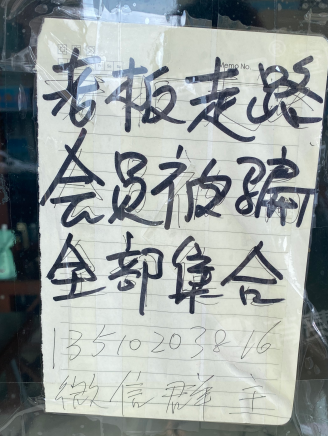 Memo No.
老板走路
会员被骗
全部集合
13510203816
微信群主